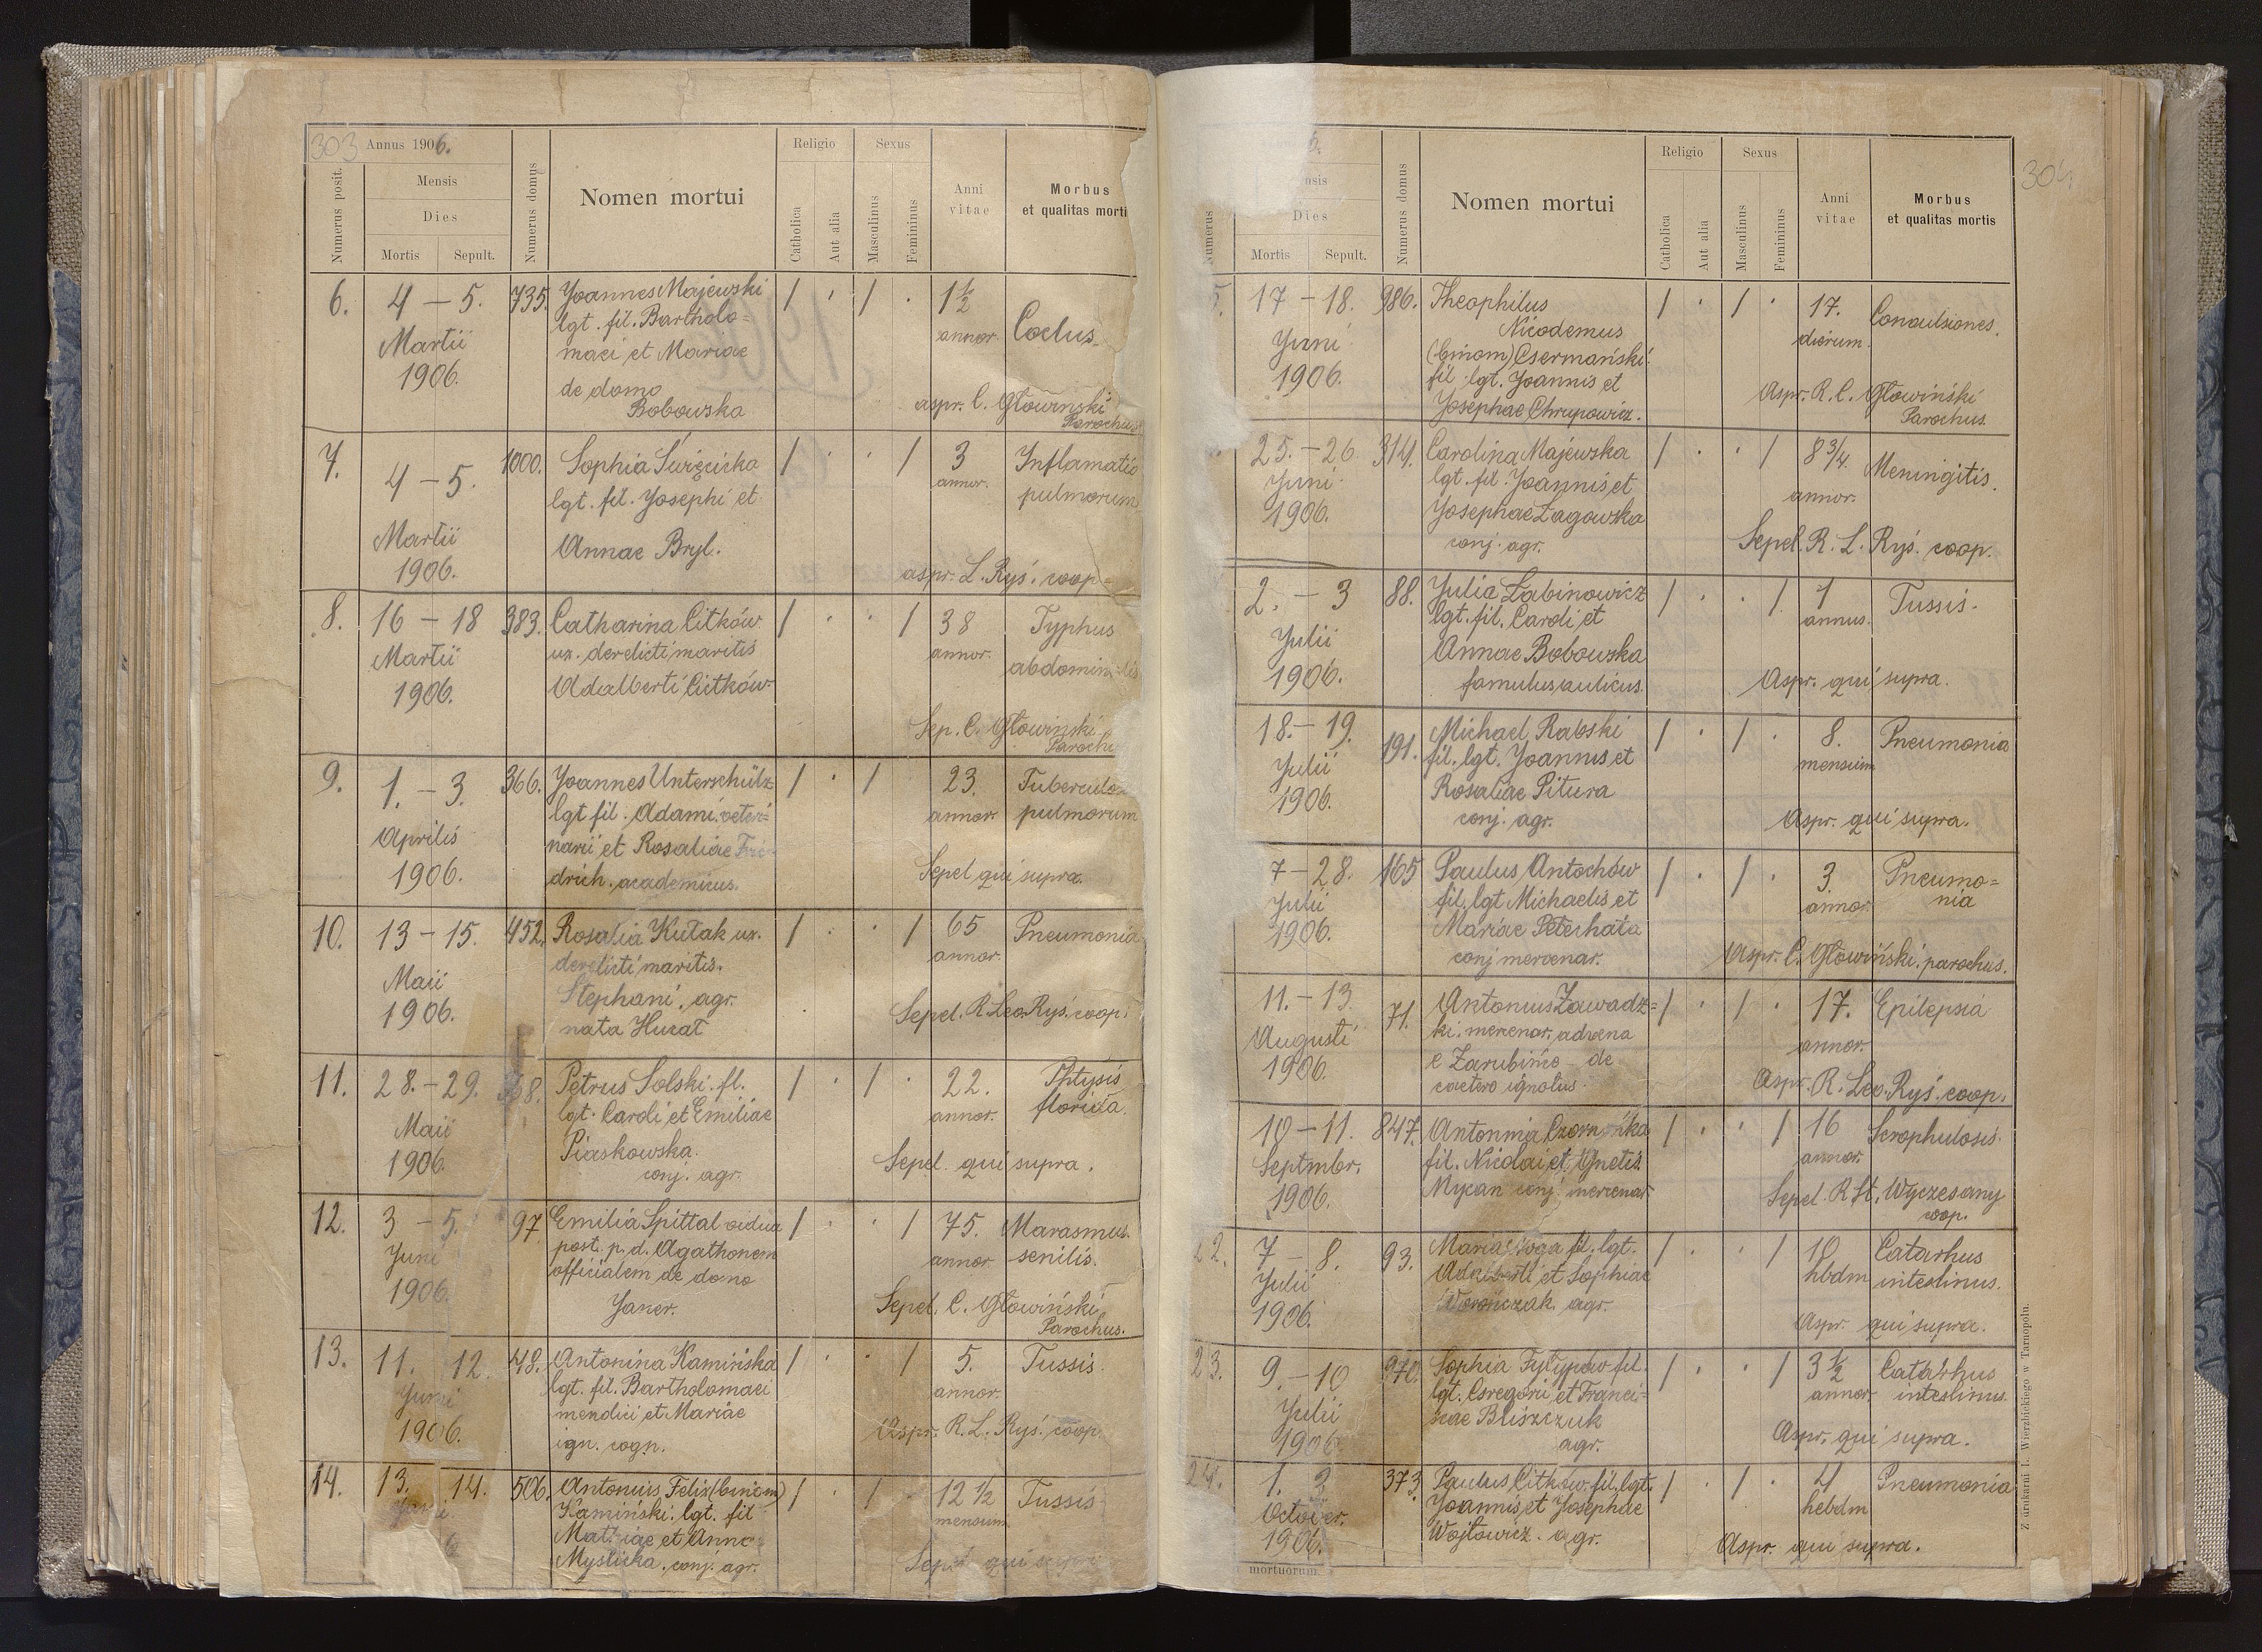 303 Annus 1906.
Numerus posit.
Mensis
Dies
Mortis Sepult.
Numerus domus
Nomen mortui
Religio
Catholica
Aut alia
Sexus
Masculinus
Femininus
Anni
vitae
Morbus
et qualitas morti
6. 4 – 5. 735. Joannes Majewski / · / · 1 1/2
lgt. fil. Bartholo=
Martii maei et Mariae annor. Coclus.
1906. de domo
Bobowska aspr. C. Głowinski
Parochus
7. 4 – 5. 1000. Sophia Świżcicka / · · / 3 Inflamatio
lgt. fil. Josephi et annor. pulmorum
Martii Annae Bryl.
1906. aspr. L. Ryś. coop=
8. 16 – 18 383. Catharina Citków / · · / 38 Typhus
Martii ux. derelicti maritis annor.
1906. Adalberti Citków.
Sep. C. Głowinski
Parochi
9. 1. – 3. 366. Joannes Unterschülz / · / 23.
lgt fil. Adami. veteri= annor. pulmorum
Aprilis narii et Rosaliae Fri-
1906. drich. academicus. Sepel qui supra.
10. 13 – 15. 452. Rosalia Kutak ux. / · · / 65 Pneumonia
derelicti maritis. annor.
Maii Stephani. agr.
1906. nata Huzat Sepel. R. Leo Ryś. coop.
11. 28. – 29. Petrus Solski. fl. / · / · 22. Phtysis
lgt. Caroli et Emiliae annor. florida.
Maii Piaskowska.
1906 conj. agr. Sepel. qui supra.
12. 3 – 5. 97 Emilia Spittal vidua / · · / 75. Marasmus
Juni post. p. d. Agathonem annor senilis.
officialem de domo
1906 Janer. Sepel. C. Głowiński
Parochus.
13. 11. 12. 48. Antonina Kamińska / · · / 5. Tussis.
Juni lgt. fil. Bartholomaei annor.
mendici et Mariae
1906. ign. cogn. Aspr. R. L. Ryś. coop.
14. 13. 14. 506. Antonius Felix (binom) / · / · 12 1/2 Tussis
Kamiński. lgt. fil mensium
Mathiae et Anna
Myslicka. conj. agr. Sepel qui supra
304.
6.
nsis
Dies
Mortis Sepult.
Numerus
Numerus domus
Nomen mortui
Religio
Catholica
Aut alia
Sexus
Masculinus
Femininus
Anni
vitae
Morbus
et qualitas mortis
5. 17 – 18. 986. Theophilus / · / · 17. Conculsiones.
Nicodemus dierum.
Juni (binom) Csermański.
1906. fil. lgt. Joannis et Aspr. R. C. Głowiński
Josephae Chrupowicz. Parochus.
25. – 26. 314. Carolina Majewska / · · / 8 3/4 Meningitis.
Juni lgt. fil. Joannis et annor.
1906. Josephae Zagowska
conj. agr. Sepel. R. L. Ryś. coop.
2. – 3 88. Julia Labinowicz / · · / 1 Tussis.
lgt. fil. Caroli et annus.
Julii Annae Bobowska
1906. famulus aulicus. Aspr. qui supra.
18. – 19. 191. Michael Rabski / · / · 8. Pneumonia
Julii fil. lgt. Joannis et mensium
1906. Rosaliae Pitura
conj. agr. Aspr. qui supra.
7 – 28. 165 Paulus Antochów / · / · 3. Pneumo=
Julii fil. lgt Michaelis et annor. nia
1906. Mariae Petechata
conj mercenar. Aspr. C. Głowiński. parochus.
11. – 13. 71. Antonius Zawadz= / · / · 17. Epilepsia
Augusti ki. mercenar. advena annor.
1906. e Zarubińce – de
caetero ignotus. Aspr. R. Leo. Ryś. coop.
10 – 11. 847. Antonina / · · / 16 Scrophulosis.
Septmbr. fil. Nicolai et Agnetis annor.
1906. Mycan conj. mercenar Sepel. R St. Wyczesany
coop.
22. 7 – 8. 93. Maria fil. lgt. / · · / 10 Catarhus
Julii Adalberti et Sophiae hbdm intestinus.
1906. Worończak. agr. Aspr. qui supra.
23. 9. – 10 970. Sophia Fyłypów fil. / · · / 3 1/2 Catarhus
Julii lgt. Gregorii et Franci= annor. intestinus.
1906 scae Bliszczuk
agr. Aspr. qui supra.
24. 1. 2 373. Paulus Citków. fil. lgt. / · / · 4 Pneumonia
October. Joannis et Josephae hebdm
1906. Wojtowicz. agr. Aspr. qui supra.
mortuorum
Z drukarni L. Wierzbickiego w Tarnopolu.